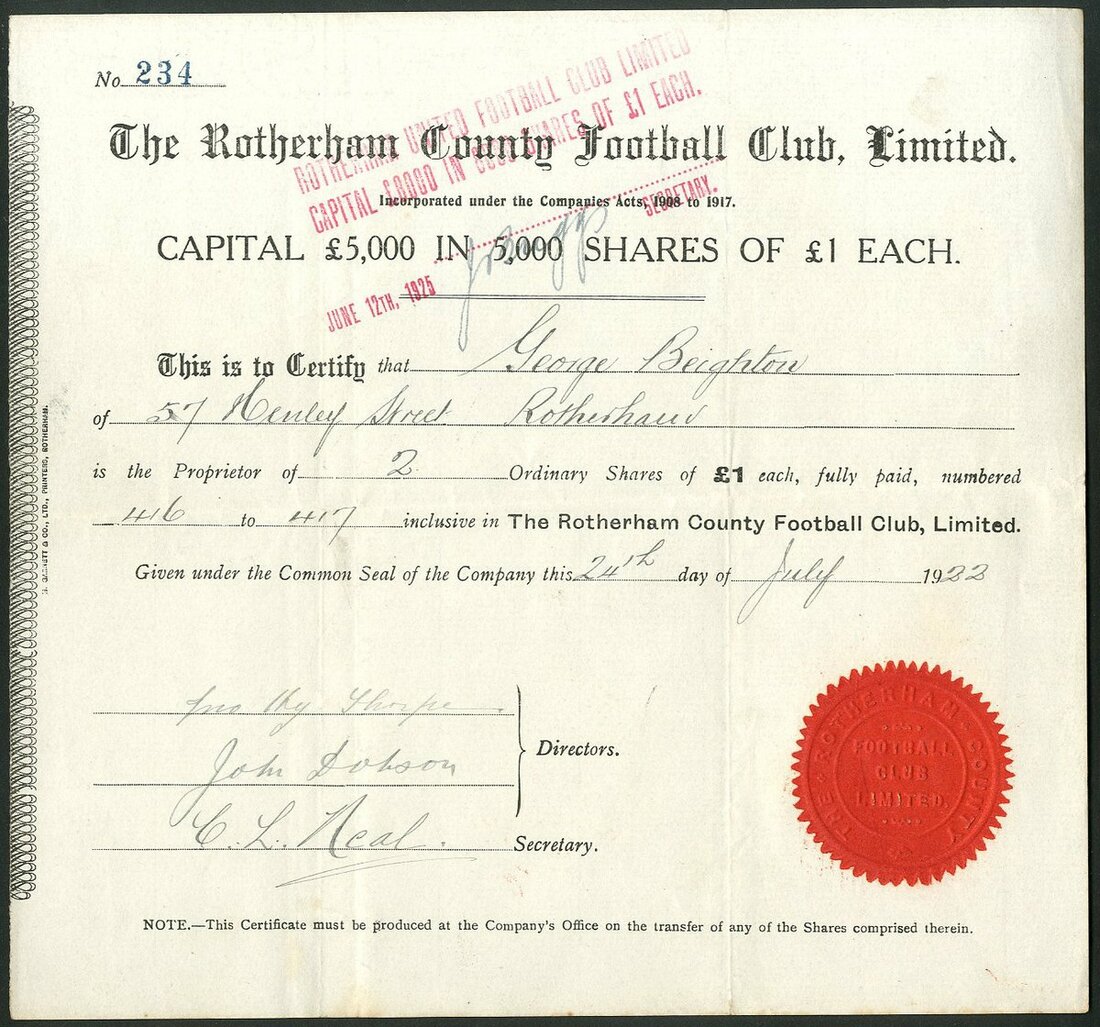 No. 234
ROTHERHAM UNITED FOOTBALL CLUB LIMITED
CAPITAL £8000 IN 8000 SHARES OF £1 EACH.
SECRETARY.
JUNE 12TH, 1925
The Rotherham County Football Club, Limited.
Incorporated under the Companies Acts, 1908 to 1917.
CAPITAL £5,000 IN 5,000 SHARES OF £1 EACH.
This is to Certify that George Beighton
of 57 Henley Street Rotherham
is the Proprietor of 2 Ordinary Shares of £1 each, fully paid, numbered
416 to 417 inclusive in The Rotherham County Football Club, Limited.
Given under the Common Seal of the Company this 24th day of July 1922
Thorpe
John Dobson
Directors.
C. L. Neal.
Secretary.
THE ROTHERHAM COUNTY
FOOTBALL
CLUB
LIMITED.
NOTE.—This Certificate must be produced at the Company's Office on the transfer of any of the Shares comprised therein.
GARNETT & CO., LTD., PRINTERS, ROTHERHAM.